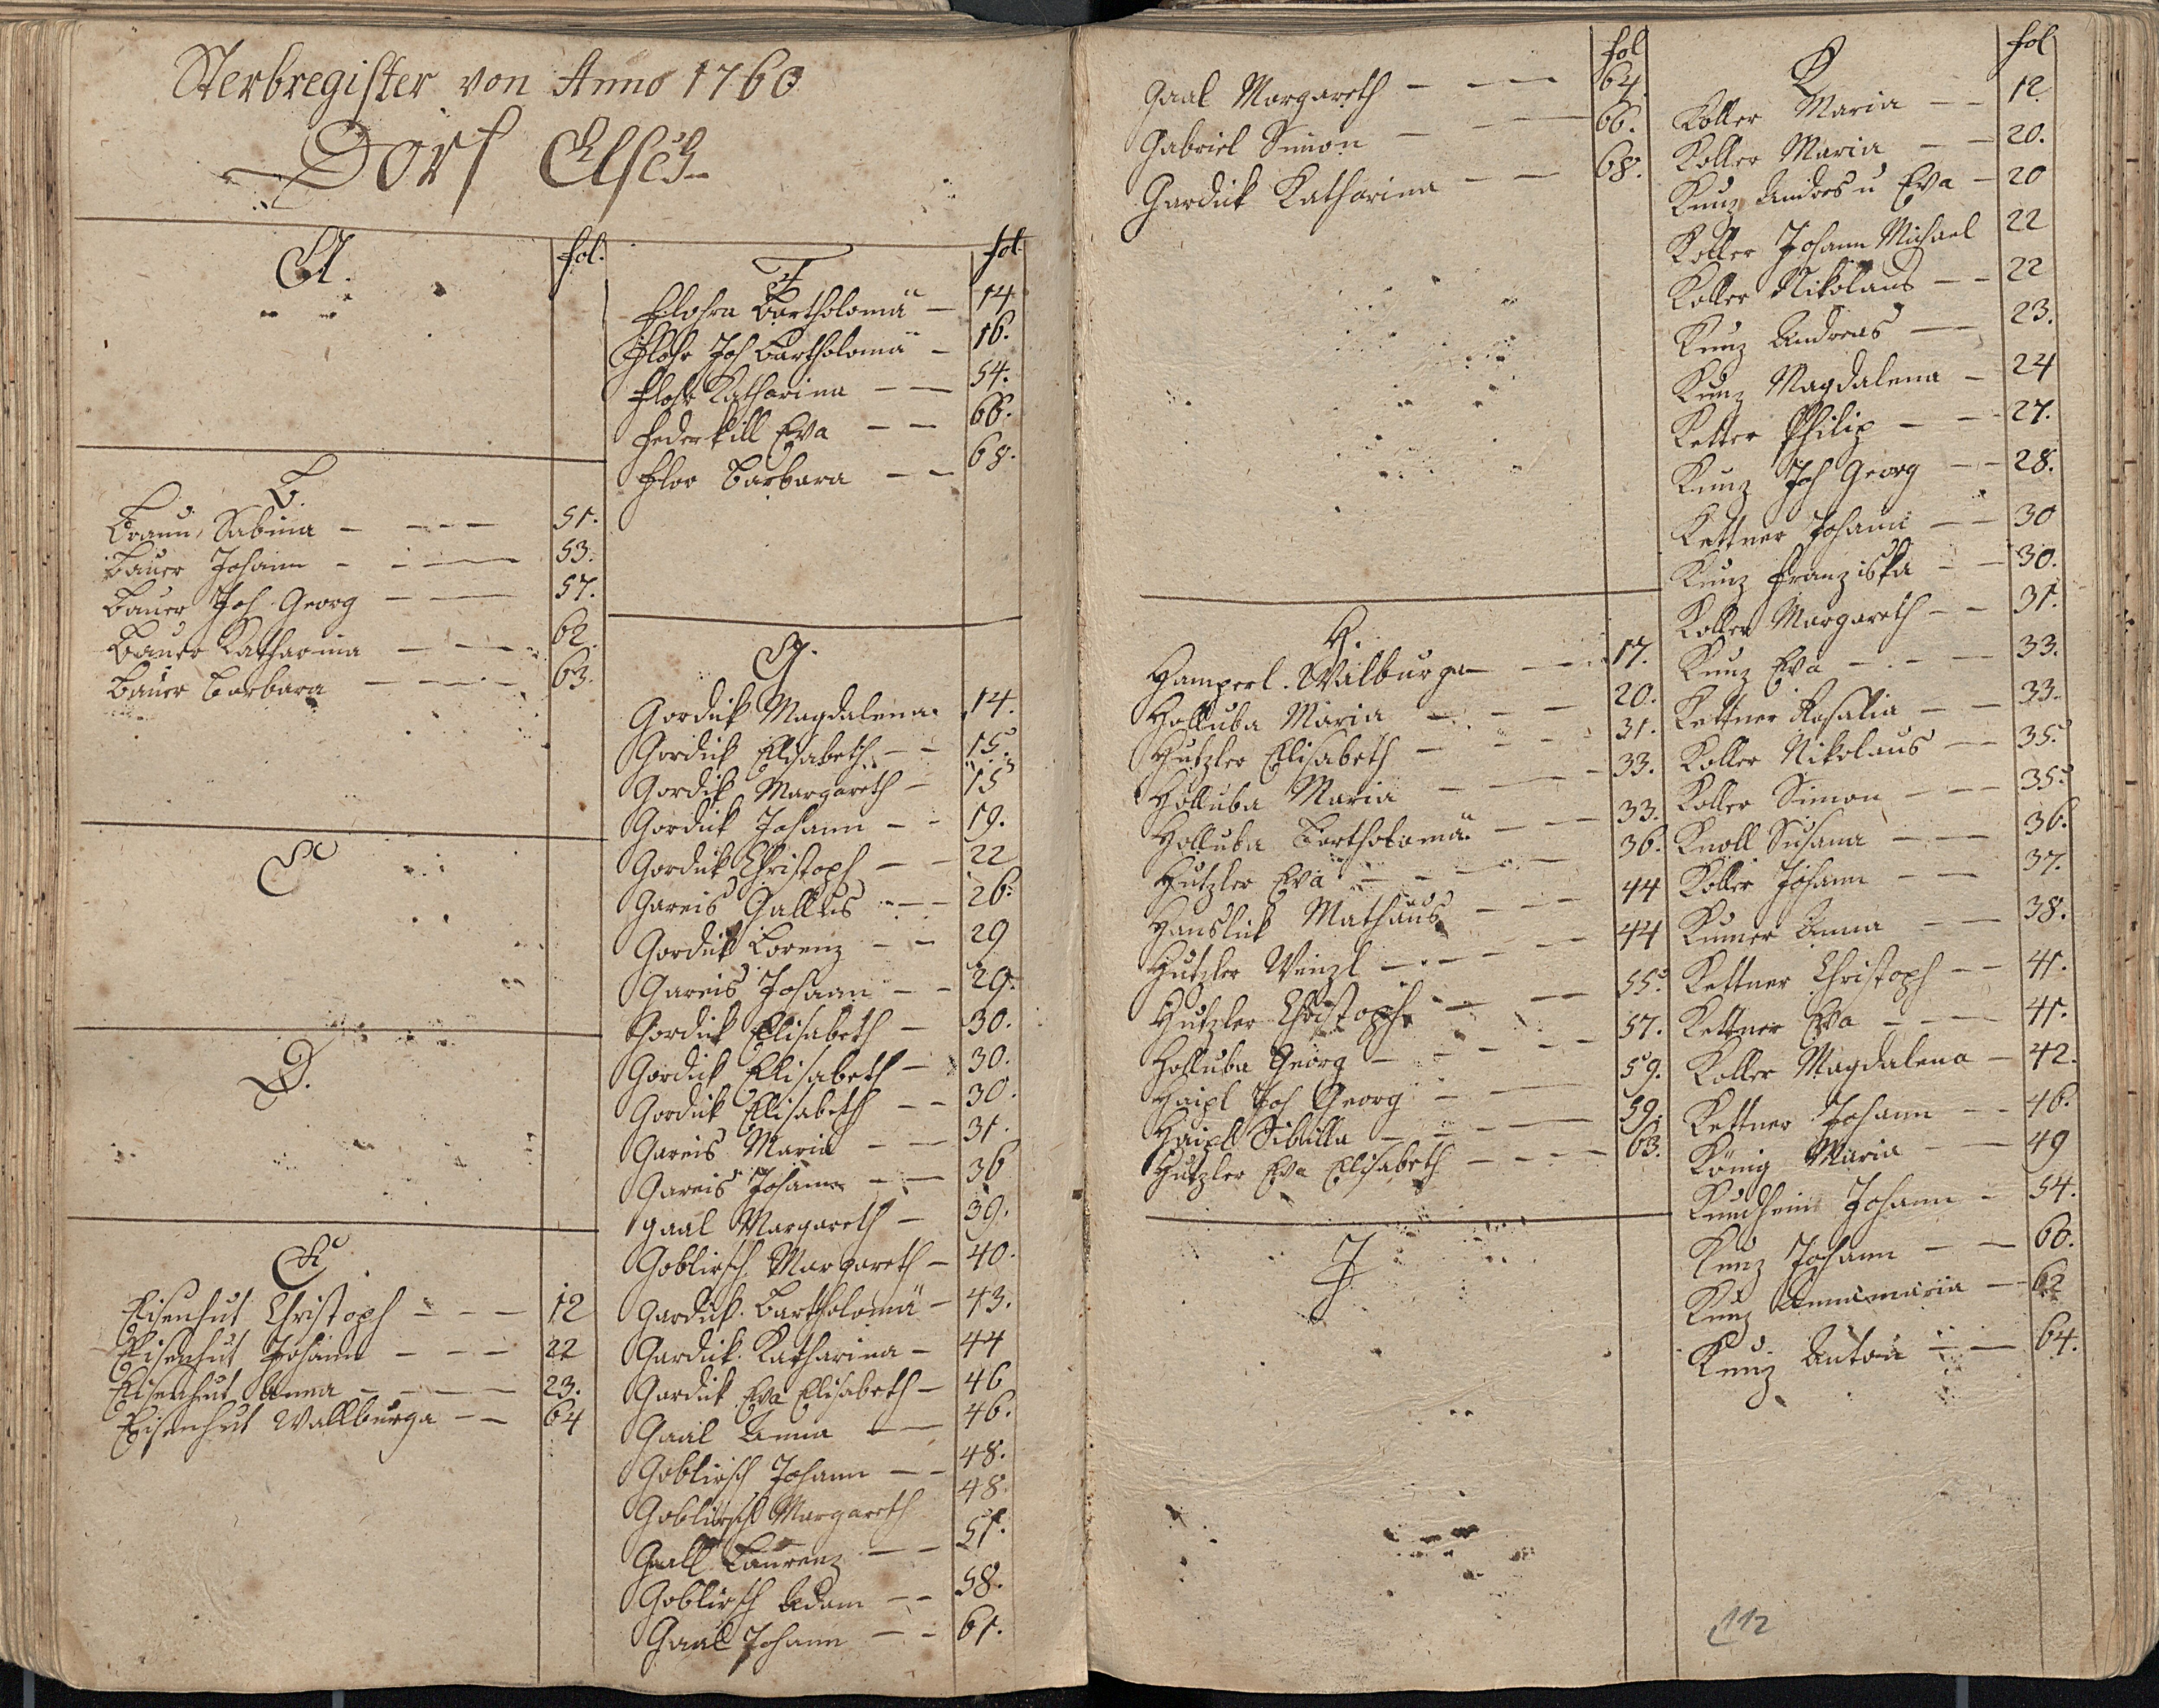 Sterbregister von Anno 1760
Dorf Elsch
A. fol.
B.
Braun Sabina 51.
Bauer Johann 53.
Bauer Joh Georg 57.
Bauer Katharina 62.
Bauer Barbara 63.
C
D.
E
Eisenhut Christoph 12
Eisenhut Johann 22
Eisenhut Anna 23.
Eisenhut Wallburga 64
F fol
Flohra Bartholomä 14
Flohr Joh Bartholomä 16.
Flohr Katharina 54.
Federkill Eva 66.
Floo Barbara 68.
G.
Gordick Magdalena 14.
Gordick Elisabeth 15.
Gordick Margareth 15
Gordick Johann 19.
Gordick Christoph 22
Gareis Gallus 26.
Gordick Lorenz 29
Gareis Johann 29.
Gordick Elisabeth 30.
Gordick Elisabeth 30.
Gordick Elisabeth 30.
Gareis Maria 31.
Gareis Johann 36
Gaal Margareth 39.
Goblirsch Margareth 40.
Gardick Bartholomä 43.
Gardick Katharina 44
Gardick Eva Elisabeth 46
Gaal Anna 46.
Goblirsch Johann 48.
Goblirsch Margareth 48
Gaall Laurenz 51.
Goblirsch Adam 58.
Gaal Johann 61.
fol
Gaal Margareth 64.
Gabriel Simon 66.
Gardick Katharina 68.
H.
Hamperl Wilburga 17.
Holluba Maria 20.
Hutzler Elisabeth 31.
Holluba Maria 33.
Holluba Bartholomä 33.
Hutzler Eva 36.
Hanslick Mathäus 44
Hutzler Winzl 44
Hutzler Christoph 55.
Holluba Georg 57.
Haipl Joh Georg 59.
Haipl Sibilla 59.
Hutzler Eva Elisabeth 63.
J
K fol
Koller Maria 12
Koller Maria 20.
Kunz Andres u Eva 20
Koller Johann Michael 22
Koller Nikolaus 22
Kunz Andreas 23.
Kunz Magdalena 24
Ketter Philip 27.
Kunz Joh Georg 28.
Kettner Johann 30
Kunz Franziska 30.
Koller Margareth 31.
Kunz Eva 33.
Kettner Rosalia 33.
Koller Nikolaus 35.
Koller Simon 35.
Knoll Susana 36.
Koller Johann 37.
Kumer Anna 38.
Kettner Christoph 41.
Kettner Eva 41.
Koller Magdalena 42.
Kettner Johann 46.
König Maria 49
Johann 54.
Kunz Johann 60.
Kunz Annamaria 62
Kunz Anton 64.
112